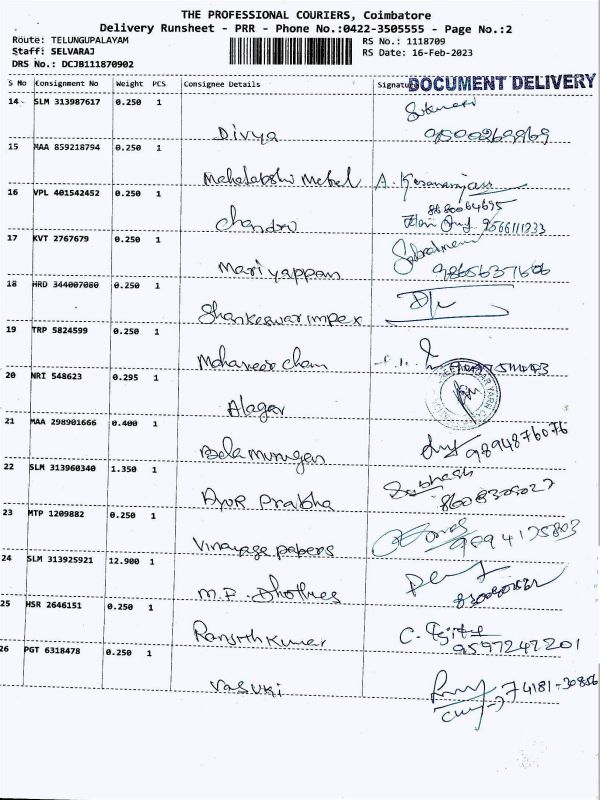 THE PROFESSIONAL COURIERS, Coimbatore
Delivery Runsheet - PRR - Phone No.:0422-3505555 - Page No.:2
Route: TELUNGUPALAYAM
RS No.: 1118709
Staff: SELVARAJ
RS Date: 16-Feb-2023
DRS No.: DCJB111870902
DOCUMENT DELIVERY
S No Consignment No Weight PCS Consignee Details Signature
14 SLM 313987617 0.250 1
Divya
15 MAA 859218794 0.250 1
Mahalakshi Metal
16 VPL 401542452 0.250 1
8680064695
Chandra 9566111233
17 KVT 2767679 0.250 1
Mariyappan
18 HRD 344007080 0.250 1
Shankeswar impex
19 TRP 5824599 0.250 1
Mahaveer cham
20 NRI 548623 0.295 1
Alagar
21 MAA 298901666 0.400 1
Bala murugan 9894876076
22 SLM 313960340 1.350 1
Subhash
Ayur Prabha 8608305027
23 MTP 1209882 0.250 1
Vinayaga papers
24 SLM 313925921 12.900 1
M.P. Dhothies
25 HSR 2646151 0.250 1
Ranjith Kumar 9597242201
26 PGT 6318478 0.250 1
Vasuki 74181-30856